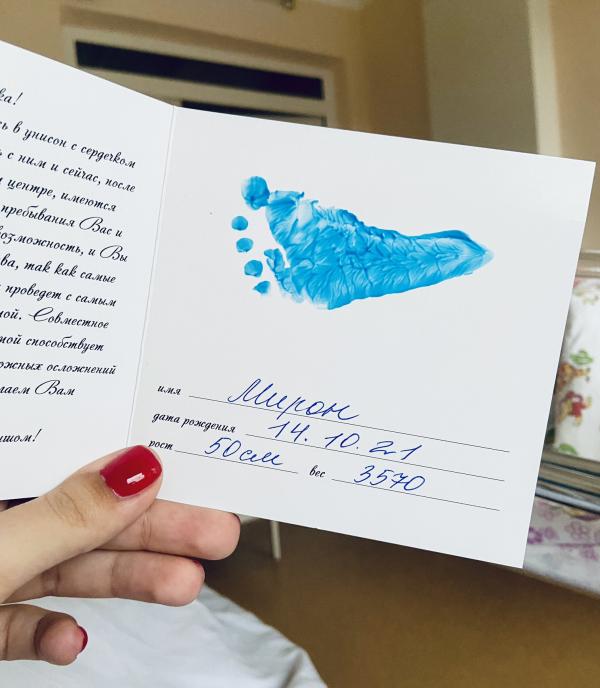 ка!
ь в унисон с сердечком
ь с ним и сейчас, после
центре, имеются
пребывания Вас и
возможность, и Вы
ва, так как самые
проведет с самым
ой. Совместное
мой способствует
ожных осложнений
лаем Вам
шом!
имя Мирон
дата рождения 14. 10. 21
рост 50см вес 3570